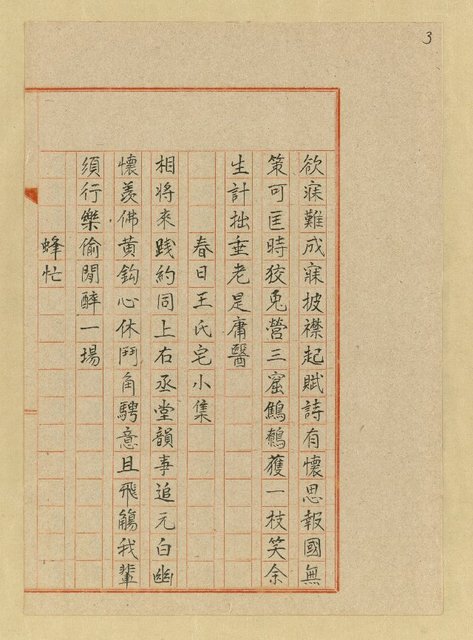 3
欲寐難成寐披襟起賦詩有懷思報國無
策可匡時狡兎營三窟鷦鷯獲一枝笑余
生計拙垂老是庸醫
春日王氏宅小集
相將來踐約同上右丞堂韻事追元白幽
懷羨佛黃鈎心休鬥角騁意且飛觴我輩
須行樂偷閒醉一場
蜂忙